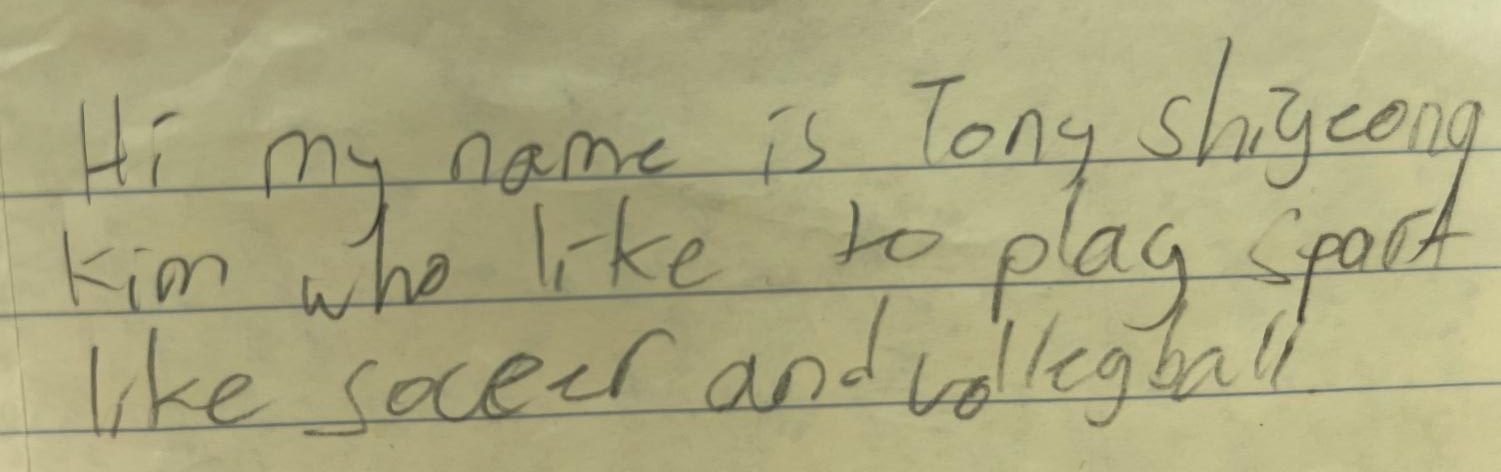 Hi my name is Tony Shiyeong
Kim who like to play sport
like soceer and volleyball